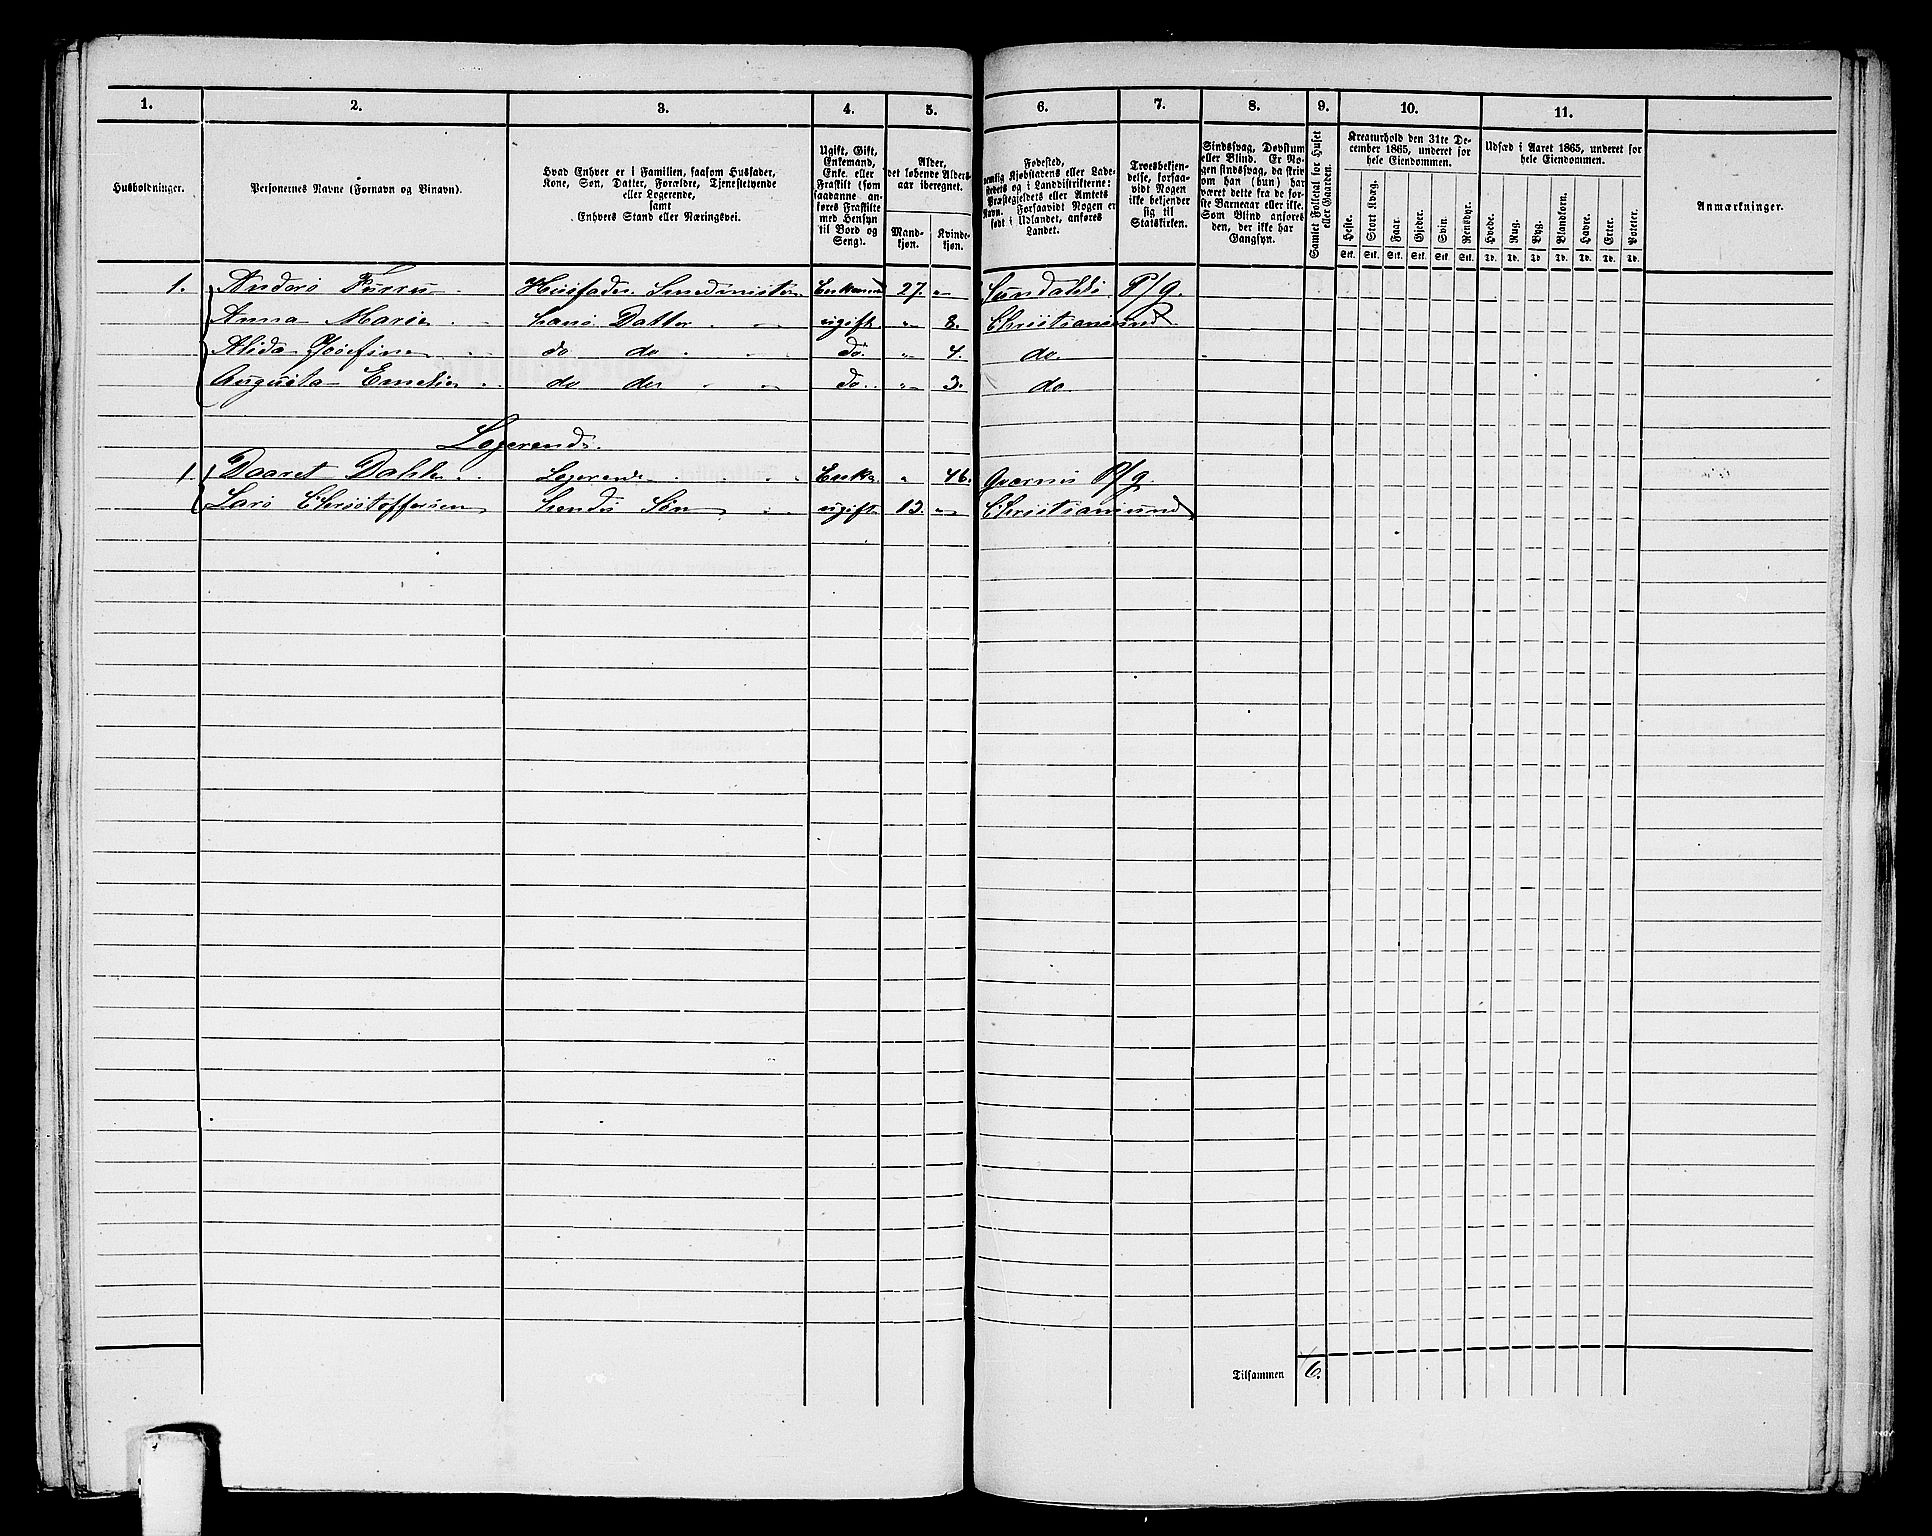 1. 2. 3. 4. 5. 6. 7. 8. 9. 10. 11.
Husholdninger.
Personernes Navne (Fornavn og Binavn).
Hvad Enhver er i Familien, saasom Husfader,
Kone, Søn, Datter, Forældre, Tjenestetyende
eller Logerende,
samt
Enhvers Stand eller Næringsvei.
Ugift, Gift,
Enkemand,
Enke eller
Fraskilt (som
saadanne an-
føres Fraskilte
med Hensyn
til Bord og
Seng).
Alder,
det løbende Alders-
aar iberegnet.
Mand-
kjøn.
Kvinde-
kjøn.
Fødested,
nemlig Kjøbstadens eller Lade-
stedets og i Landdistrikterne:
Præstegjeldets eller Amtets
Navn. Forsaavidt Nogen er
født i Udlandet, anføres
Landet.
Troesbekjen-
delse, forsaa-
vidt Nogen
ikke bekjender
sig til
Statskirken.
Sindssvag, Døvstum
eller Blind. Er No-
gen sindssvag, da skriv
om han (hun) har
været dette fra de før-
ste Barneaar eller ikke.
Som Blind anføres
den, der ikke har
Gangsyn.
Samlet Folketal for Huset
eller Gaarden.
Kreaturhold den 31te De-
cember 1865, underet for
hele Eiendommen.
Heste. Stort Kvæg. Faar. Gjeder. Svin. Rensdyr.
Stk. Stk. Stk. Stk. Stk. Stk.
Udsæd i Aaret 1865, underet for
hele Eiendommen.
Hvede. Rug. Byg. Blandkorn. Havre. Erter. Poteter.
Td. Td. Td. Td. Td. Td. Td.
Anmærkninger.
1. Anders Furru Husfader Smedmester Enkemand 27. " Sundahls P/g.
Anna Marie hans Datter ugift " 8. Christiansund
Alida Josefine do do do. " 4. do.
Augusta Emelie do do do. " 3. do
Logerende.
1. Daaret Dahle Logerende Enke " 46. Qvernes P/g.
Lars Christoffersen hendes Søn ugift 13. " Christiansund
Tilsammen 6.